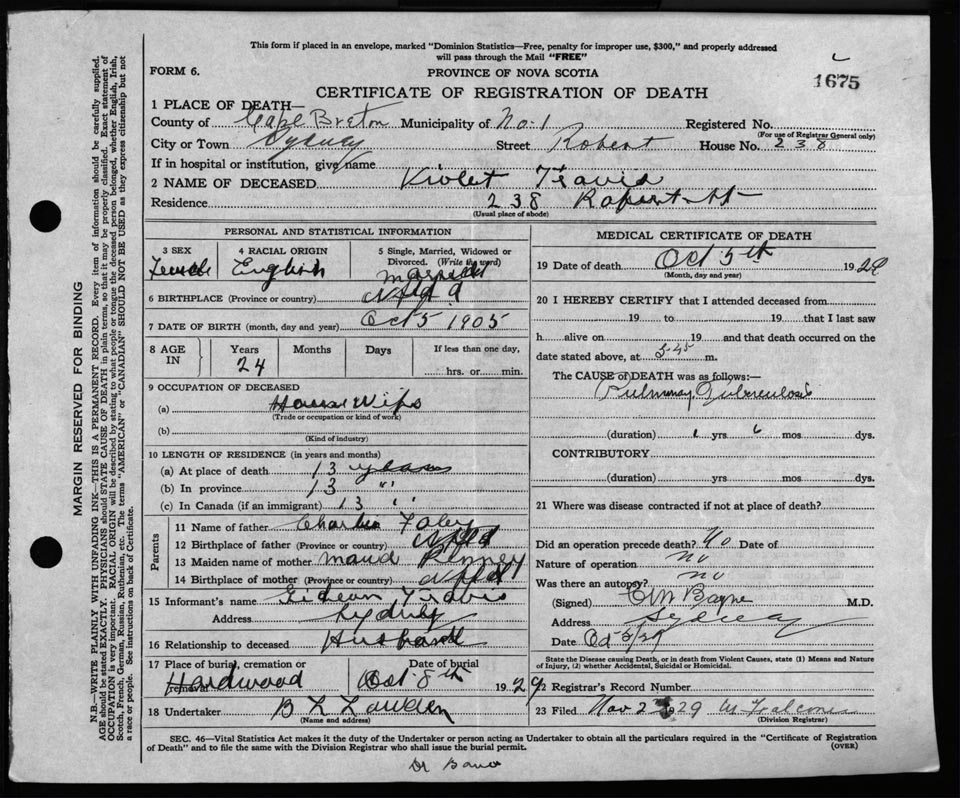 This form if placed in an envelope, marked "Dominion Statistics—Free, penalty for improper use, $300," and properly addressed
will pass through the Mail "FREE"
FORM 6.
PROVINCE OF NOVA SCOTIA
1675
CERTIFICATE OF REGISTRATION OF DEATH
1 PLACE OF DEATH—
County of Cape Breton Municipality of No. 1 Registered No.
(For use of Registrar General only)
City or Town Sydney Street Robert House No. 238
If in hospital or institution, give name
2 NAME OF DECEASED Violet Travis
Residence 238 St
(Usual place of abode)
PERSONAL AND STATISTICAL INFORMATION
3 SEX 4 RACIAL ORIGIN 5 Single, Married, Widowed or
Divorced. (Write the word)
Female English Married
6 BIRTHPLACE (Province or country) Nfld
7 DATE OF BIRTH (month, day and year) Oct 5 1905
8 AGE IN Years Months Days If less than one day,
24 hrs. or min.
9 OCCUPATION OF DECEASED
(a) House Wife
(Trade or occupation or kind of work)
(b)
(Kind of industry)
10 LENGTH OF RESIDENCE (in years and months)
(a) At place of death 13 years
(b) In province 13 " "
(c) In Canada (if an immigrant) 13 " "
Parents
11 Name of father Charlie Foley
12 Birthplace of father (Province or country) Nfld
13 Maiden name of mother Maud Penney
14 Birthplace of mother (Province or country) Nfld
15 Informant's name Gideon Travis
Address Sydney
16 Relationship to deceased Husband
17 Place of burial, cremation or removal Date of burial
Hardwood Oct 8th 1929
18 Undertaker B L
(Name and address)
MEDICAL CERTIFICATE OF DEATH
19 Date of death Oct 5th 1929
(Month, day and year)
20 I HEREBY CERTIFY that I attended deceased from
19 to 19 that I last saw
h alive on 19 and that death occurred on the
date stated above, at 5-45 m.
The CAUSE of DEATH was as follows:—
Pulmonary Tuberculosis
(duration) 1 yrs 6 mos dys.
CONTRIBUTORY
(duration) yrs mos dys.
21 Where was disease contracted if not at place of death?
Did an operation precede death? No Date of
Nature of operation no
Was there an autopsy? no
(Signed) Bayne M.D.
Address Sydney
Date Oct 5/29
State the Disease causing Death, or in death from Violent Causes, state (1) Means and Nature
of Injury, (2) whether Accidental, Suicidal or Homicidal.
22 Registrar's Record Number
23 Filed Nov 2 1929
(Division Registrar)
SEC. 46—Vital Statistics Act makes it the duty of the Undertaker or person acting as Undertaker to obtain all the particulars required in the "Certificate of Registration
of Death" and to file the same with the Division Registrar who shall issue the burial permit.
(OVER)
Dr
MARGIN RESERVED FOR BINDING
N.B.—WRITE PLAINLY WITH UNFADING INK—THIS IS A PERMANENT RECORD. Every item of information should be carefully supplied.
AGE should be stated EXACTLY. PHYSICIANS should STATE CAUSE OF DEATH in plain terms, so that it may be properly classified. Exact statement of
OCCUPATION is very important. RACIAL ORIGIN will be described by stating to what people or tongue the deceased person belonged, whether English, Irish,
Scotch, French, German, Russian, Ruthenian, etc. The terms "AMERICAN" or "CANADIAN" SHOULD NOT BE USED as they express citizenship but not
a race or people. See instructions on back of Certificate.